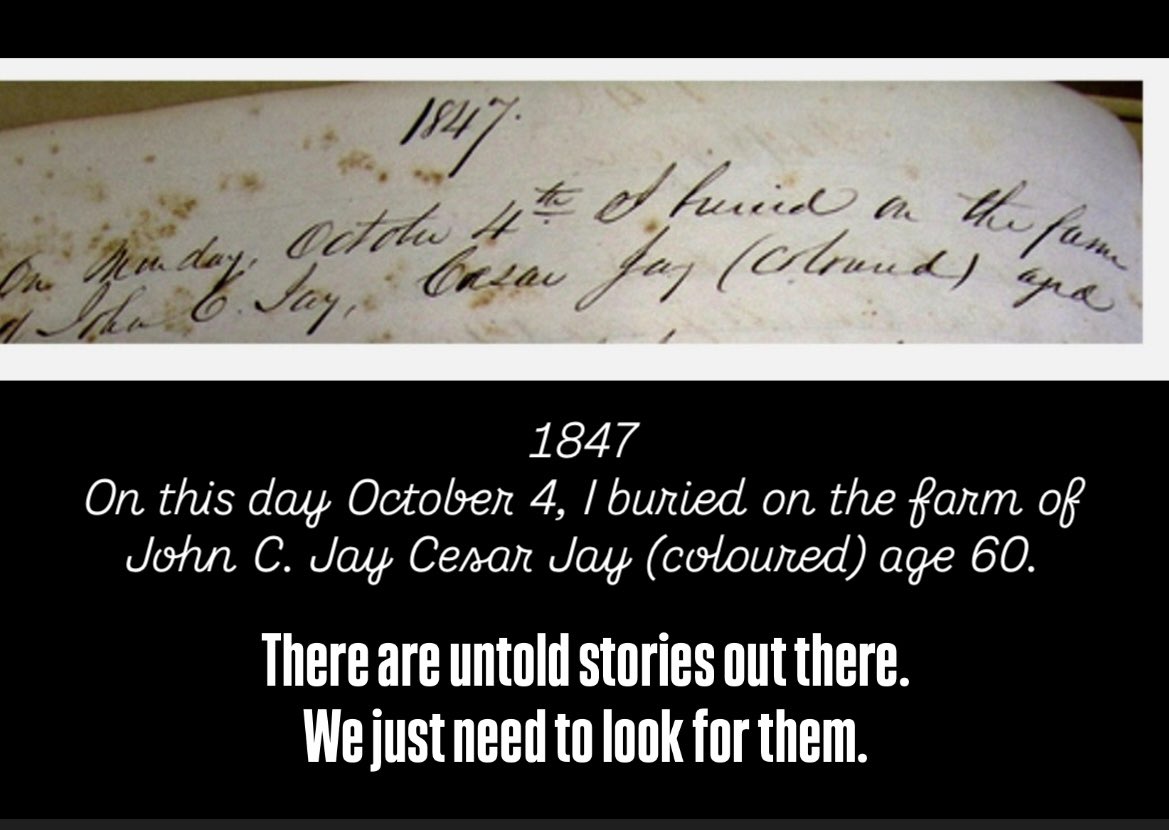 1847.
On Monday, October 4th I buried on the farm
of John C. Jay, Cæsar Jay (coloured) aged
1847
On this day October 4, I buried on the farm of
John C. Jay Cesar Jay (coloured) age 60.
There are untold stories out there.
We just need to look for them.